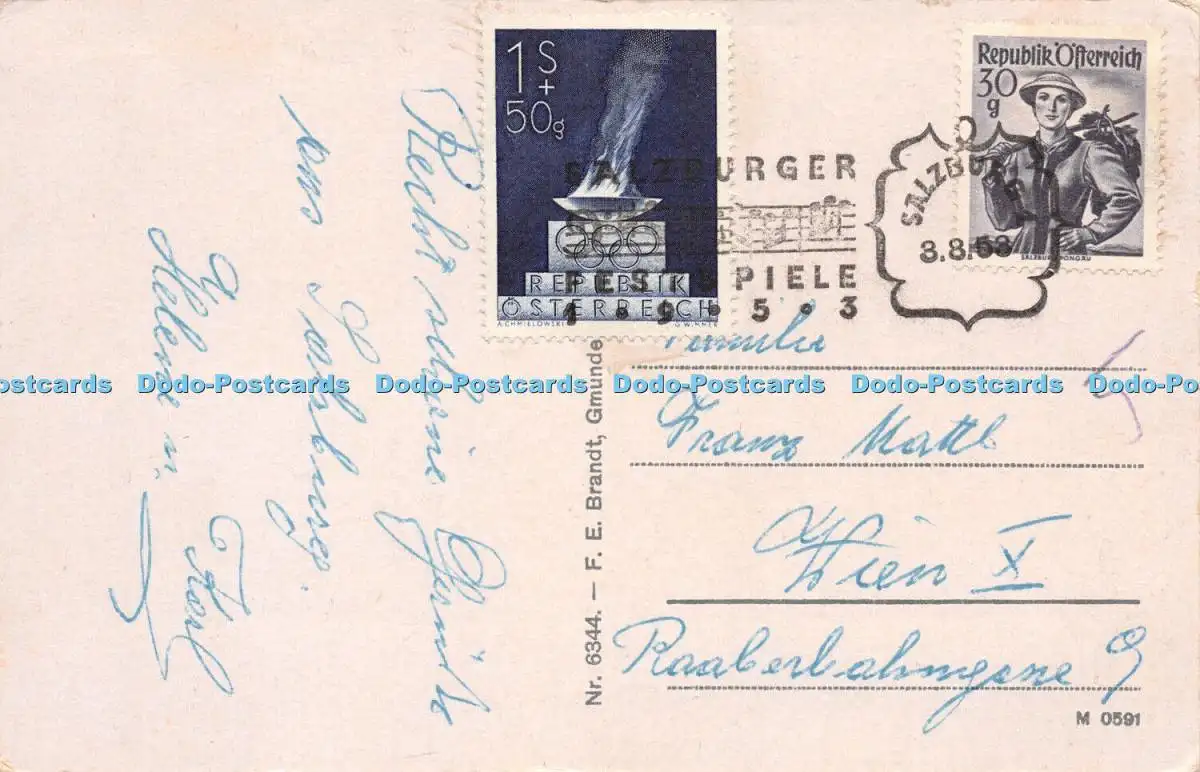 Recht schöne Grüße
aus Salzburg.
Helene u.
Karl
1 S
+
50g
REPUBLIK
ÖSTERREICH
A.CHMIELOWSKI G.WIMMER
Republik Österreich
30
g
SALZBURG, PONGAU
SALZBURGER
FESTSPIELE
1•9•5•3
SALZBURG 2
3.8.53
Familie
Franz Mattl
Wien X
Raaberbahngasse 9
Nr. 6344. — F. E. Brandt, Gmunde
M 0591
Dodo-Postcards Dodo-Postcards Dodo-Postcards Dodo-Postcards Dodo-Postcards Dodo-Postcards